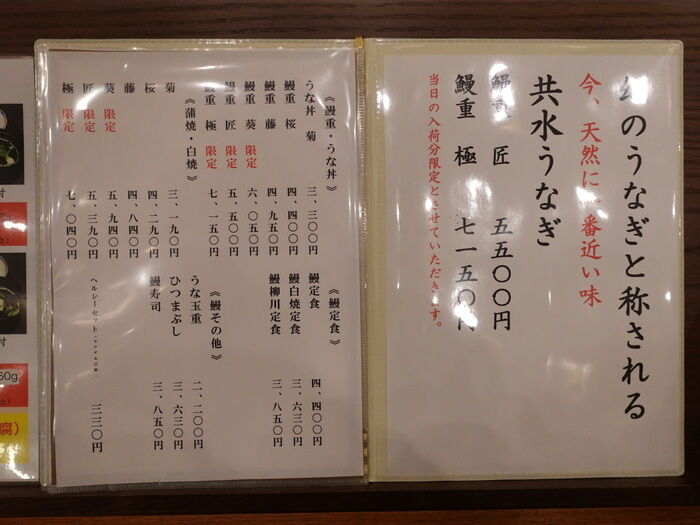 幻のうなぎと称される
今、天然に一番近い味
共水うなぎ
鰻重 匠 五五〇〇円
鰻重 極 七一五〇円
当日の入荷分限定とさせていただきます。
《鰻重・うな丼》
うな丼 菊 三、三〇〇円
鰻重 桜 四、四〇〇円
鰻重 藤 四、九五〇円
鰻重 葵 限定 六、〇五〇円
鰻重 匠 限定 五、五〇〇円
鰻重 極 限定 七、一五〇円
《蒲焼・白焼》
菊 三、一九〇円
桜 四、二九〇円
藤 四、八四〇円
葵 限定 五、九四〇円
匠 限定 五、三九〇円
極 限定 七、〇四〇円
《鰻定食》
鰻定食 四、四〇〇円
鰻白焼定食 三、六三〇円
鰻柳川定食 三、八五〇円
《鰻その他》
うな玉重 二、二〇〇円
ひつまぶし 三、六三〇円
鰻寿司 三、八五〇円
ヘルシーセット 三三〇円
付
付
60g
腐）